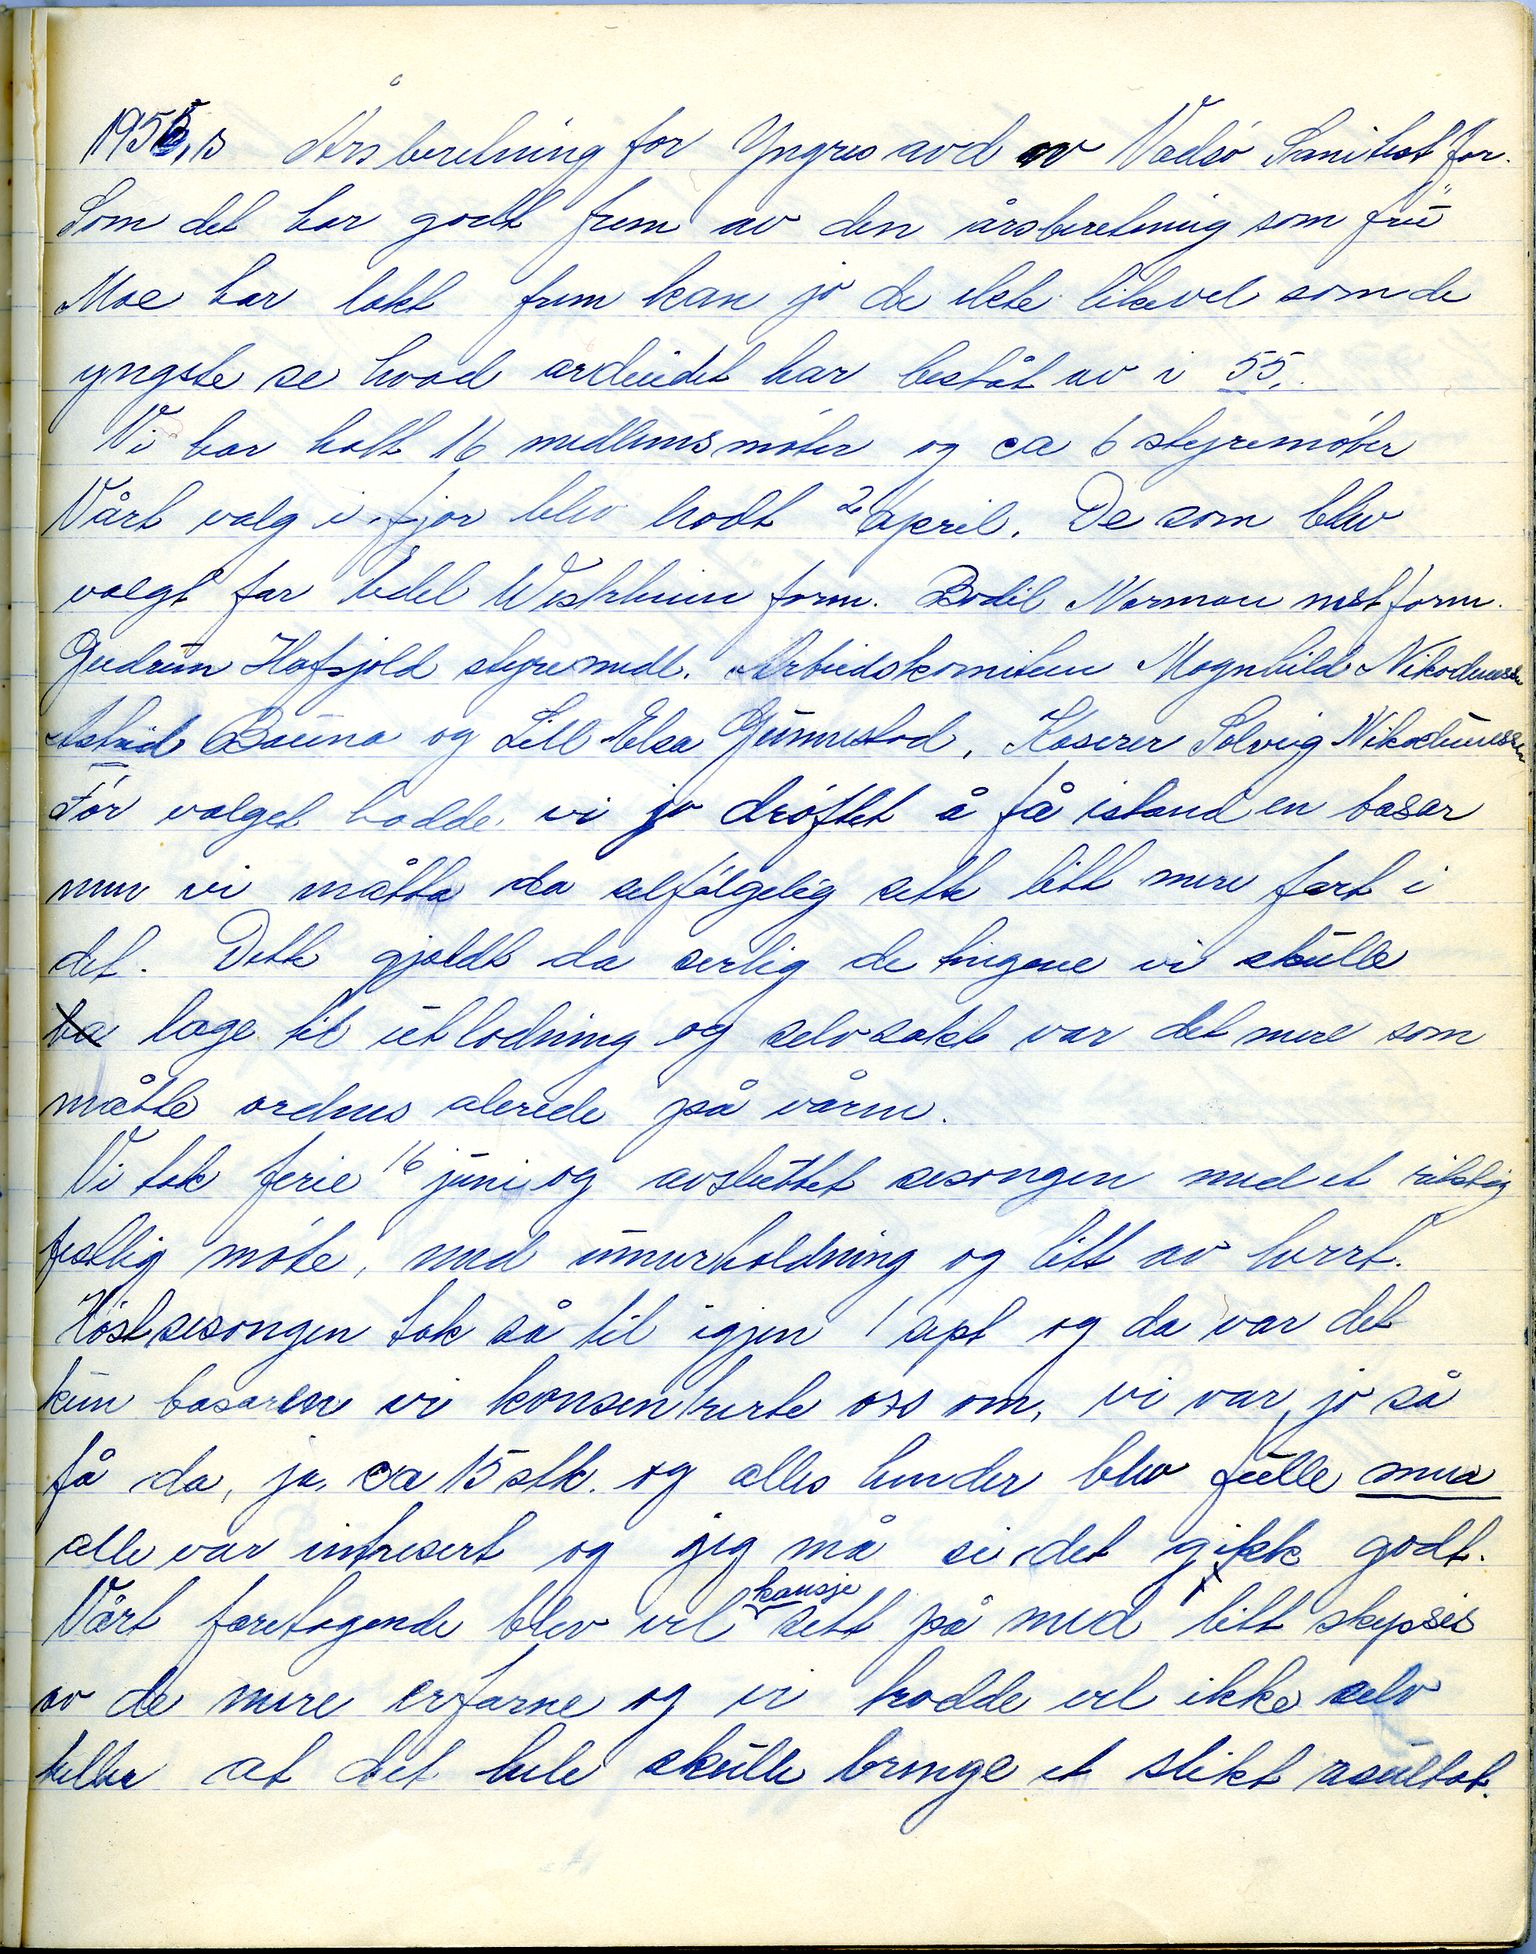 1955,s Årsberetning for Yngres avd av Vadsø Sanitest for.
Som det har godt frem av den årsberetning som frü
Moe har lakt frem kan jo de ikke likevel som de
yngste se hvad arbeidet har bestått av i 55.
Vi har holt 16 medlemsmøter og ca 6 styremøter
Vårt valg i fjor blev hodt 2 april. De som blev
valgt far Edel Westrheim form. Bodil Norman nestform.
Gudrün Hafsjold styremedl. Arbeidskomiteen Magnhild Nikodemssen
Astrid Bauna og Lill Elsa Günnestad, Kaserer Solveig Nikodemussen
Før valget hadde vi jo drøftet å få istand en basar
men vi måtte da selfølgelig sette litt mere fart i
det. Dette gjaldt da serlig de tingene vi skülle
ba lage til ütlodning og selvsakt var det mere som
måtte ordnes alerede på våren.
Vi tok ferie 16 jüni og avslüttet sesongen med et riktig
festlig møte, med ünnerholdning og litt av hvert.
Høstsesongen tok så til igjen 1 sept og da var det
kün basaren vi konsentrerte oss om, vi var jo så
få da, ja, ca 15 stk. og alles hender blev fülle men
alle var intresert og jeg må si det gikk godt.
Vårt foretagende blev vel kansje sett på med litt skepsis
av de mere erfarne og vi trodde vel ikke selv
heller at det hele skülle bringe et slikt resültat.